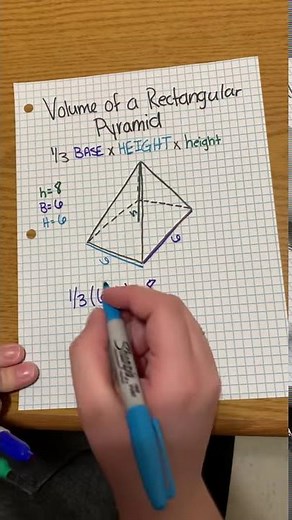 Volume of a Rectangular
Pyramid
1/3 BASE x HEIGHT x height
h=8
B=6
H=6
h
6
6
1/3 (6 8
Sharpie